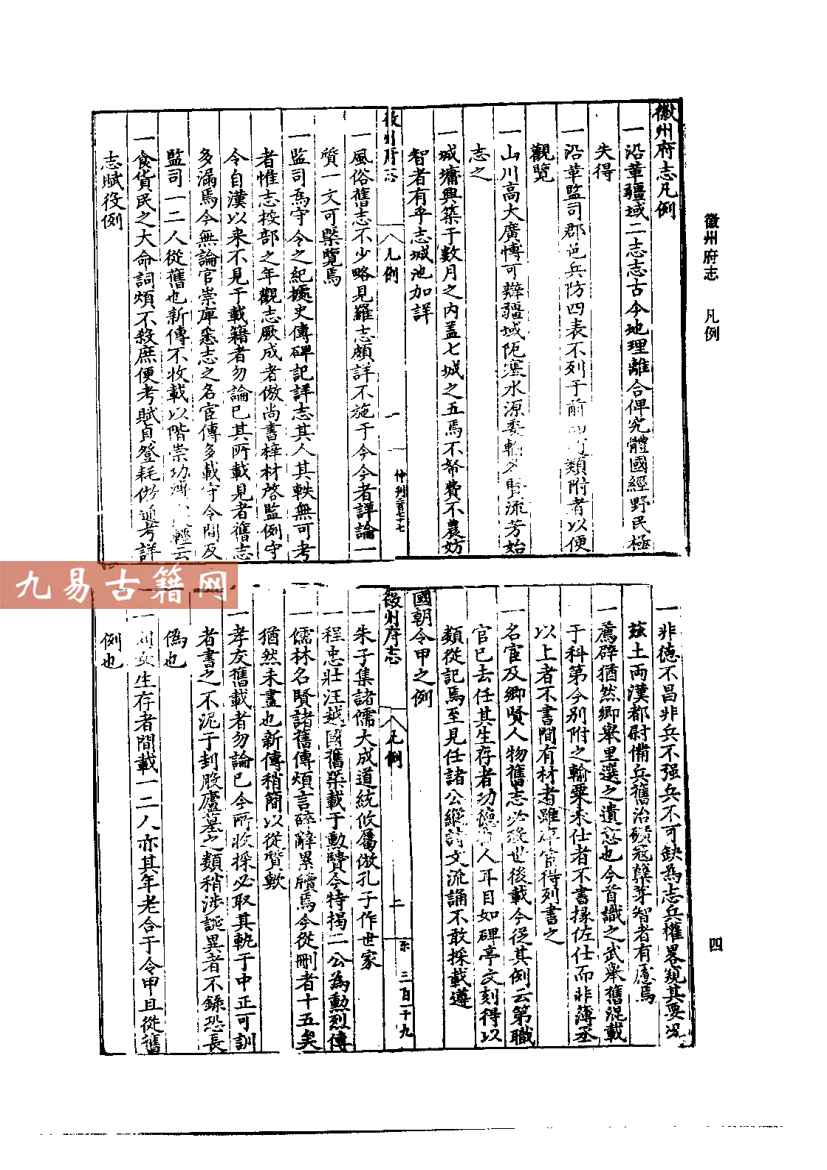 徽州府志 凡例
徽州府志凡例
一沿革疆域二志志古今地理離合俾究體國經野民極
失得
一沿革監司郡邑兵防四表不列于前 類附者以便
觀覽
一山川高大廣愽可辨疆域阨塞水源委輸名賢流芳始
志之
一城墉興築于數月之內蓋七城之五焉不帑費不農妨
智者有乎志城池加詳
徽州府志
凡例
一
仲列三百七十七
一風俗舊志不少略見羅志頗詳不施于今今者詳論一
質一文可槩覽焉
一監司為守令之紀據史傳碑記詳志其人其軼無可考
者惟志按部之年觀志厥成者倣尚書梓材啓監例守
令自漢以來不見于載籍者勿論已其所載見者舊志
多漏焉今無論官崇庳悉志之名宦傳多載守令間及
監司一二人從舊也新傳不收載以階崇功 輕云
一食貨民之大命詞煩不殺庶便考賦貢登耗倣 考詳
志賦役例
一非德不昌非兵不强兵不可缺為志兵權畧規其要況
玆土兩漢都尉備兵舊治礦冦孽芽智者有慮焉
一薦辟猶然鄉舉里選之遺意也今首識之武舉舊混載
于科第今別附之輸粟未仕者不書掾佐仕而非簿丞
以上者不書間有材者雖 官得列書之
一名宦及鄉賢人物舊志必殁世後載今從其例云第職
官已去任其生存者功德 人耳目如碑亭文刻得以
類從記焉至見任諸公縱詩文流誦不敢採載遵
國朝令甲之例
徽州府志
凡例
二
三百十九
一朱子集諸儒大成道統攸屬倣孔子作世家
一程忠壯汪越國舊槩載于勳賢今特揭二公為勳烈傳
一儒林名賢諸舊傳煩言碎辭累牘焉今從刪者十五矣
猶然未盡也新傳稍簡以從質歟
一孝友舊載者勿論已今所收採必取其軌于中正可訓
者書之不泥于刲股廬墓之類稍涉誕異者不錄恐長
偽也
一列女生存者間載一二人亦其年老合于令甲且從舊
例也
四
九易古籍网